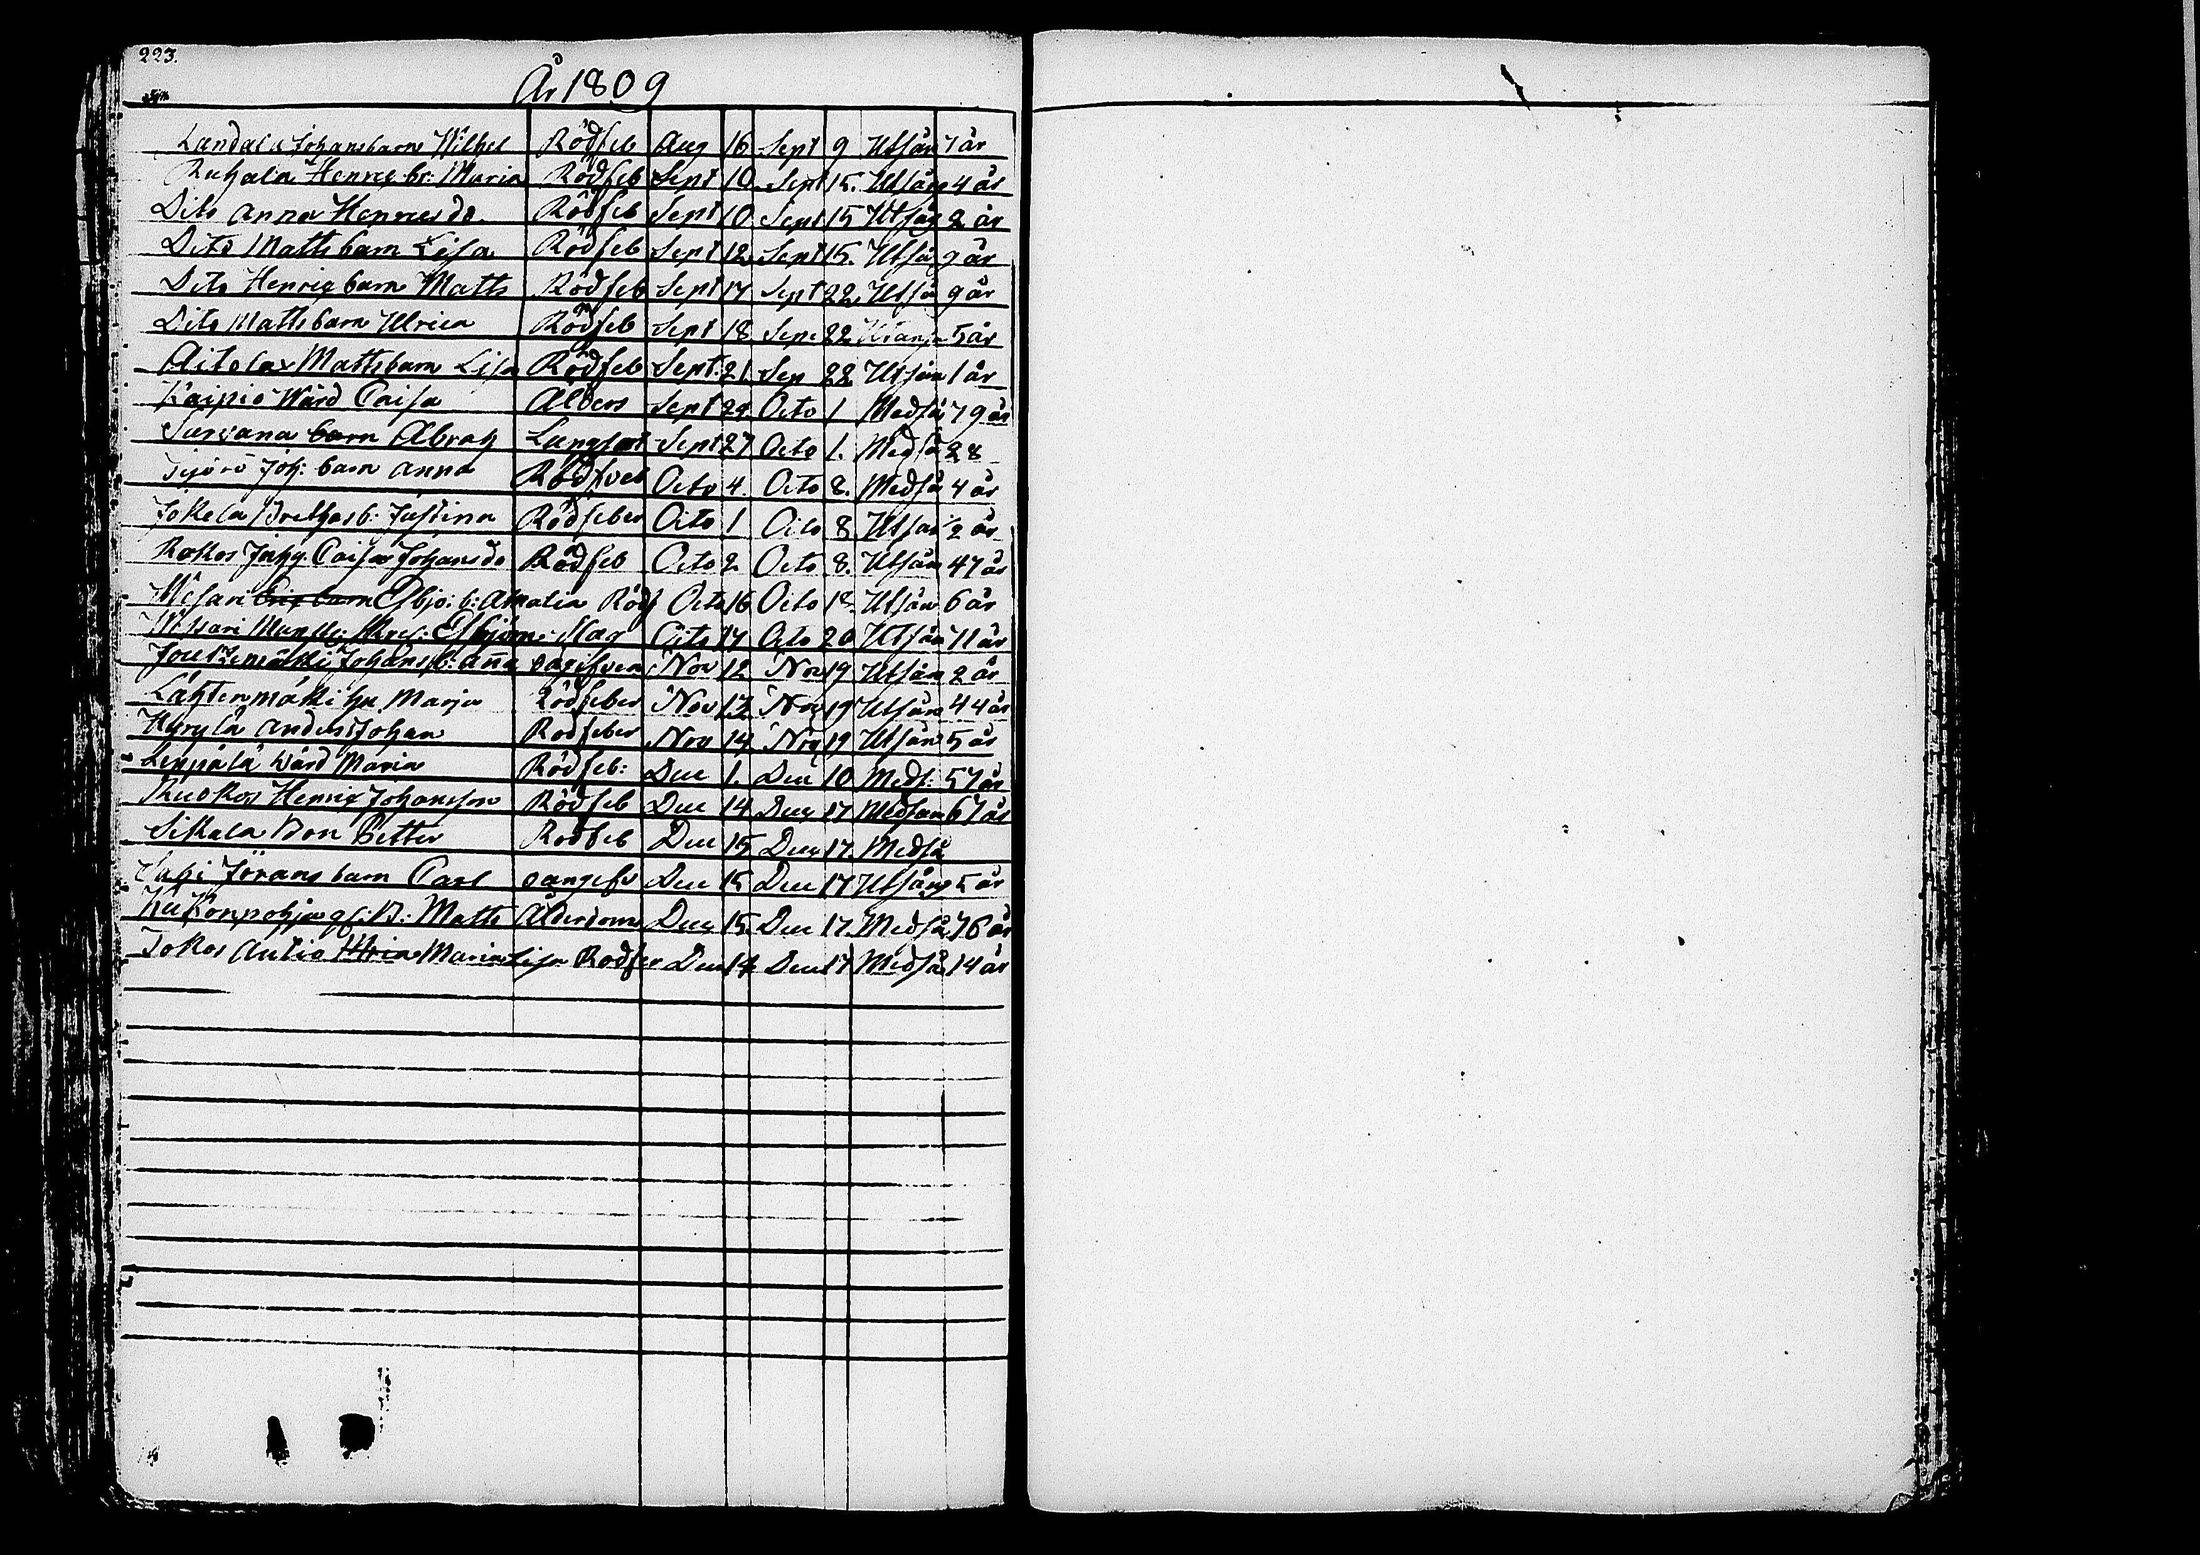 223.
År 1809
Landala Johansbarn Wilhel Rödfeb Aug 16 Sept 9 Utsån 7 år
Ruhala Henric br: Maria Rödfeb Sept 10 Sept 15. Utsån 4 år
Dito Anna Henricsdo Rödfeb Sept 10 Sept 15 Utsån 2 år
Dito Matts barn Lisa Rödfeb Sept 12 Sept 15. Utså 9 år
Dito Henric barn Matts Rödfeb Sept 17 Sept 22 Utså 9 år
Dito Matts barn Ulrica Rödfeb Sept 18 Sept 22 5 år
Mattsbarn Lisa Rödfeb Sept. 21 Sep 22 Utsån 1 år
Kaipio Wärd Caisa Alders Sept 29 Octo 1 Medså 79 år
barn Abrah Lungsot Sept 27 Octo 1. Medså 28
Joh: barn Anna Rödfveb Octo 4. Octo 8. Medså 4 år
Jokela b: Justina Rödfeber Octo 1 Octo 8 Utsån 1/2 år
Rokos Caisa Johansdo Rödfeb Octo 2 Octo 8. Utsån 47 år
Wesari Eric barn Esbjo: b: Amalia Rödf Octo 16 Octo 18. Utsån 6 år
Esbjörn Slag Octo 17 Octo 20 Utsån 71 år
Johans b: Anna Nov 12 Nov 19 Utsån 2 år
Lähtenmäki hu Marja Rödfeber Nov 13 Nov 19 Utsån 44 år
Hyrylä Anders Johan Rodfeber Nov 14 Nov 19 Utsån 5 år
Leppälä Wärd Maria Rödfeb: Dec 1. Dec 10 Meds: 57 år
Ruokos Henric Johansson Rödfeb Dec 14 Dec 17 Medsån 67 år
Sikala Bon Petter Rodfeb Dec 15 Dec 17. Medså
Jörans barn Carl Dec 15 Dec 17 Utsång 5 år
Matts Ålderdom Dec 15. Dec 17. Medså 76 år
Jokos Autio Ulrica Maria Lisa Rodfer Dec 14 Dec 17 Medså 14 år